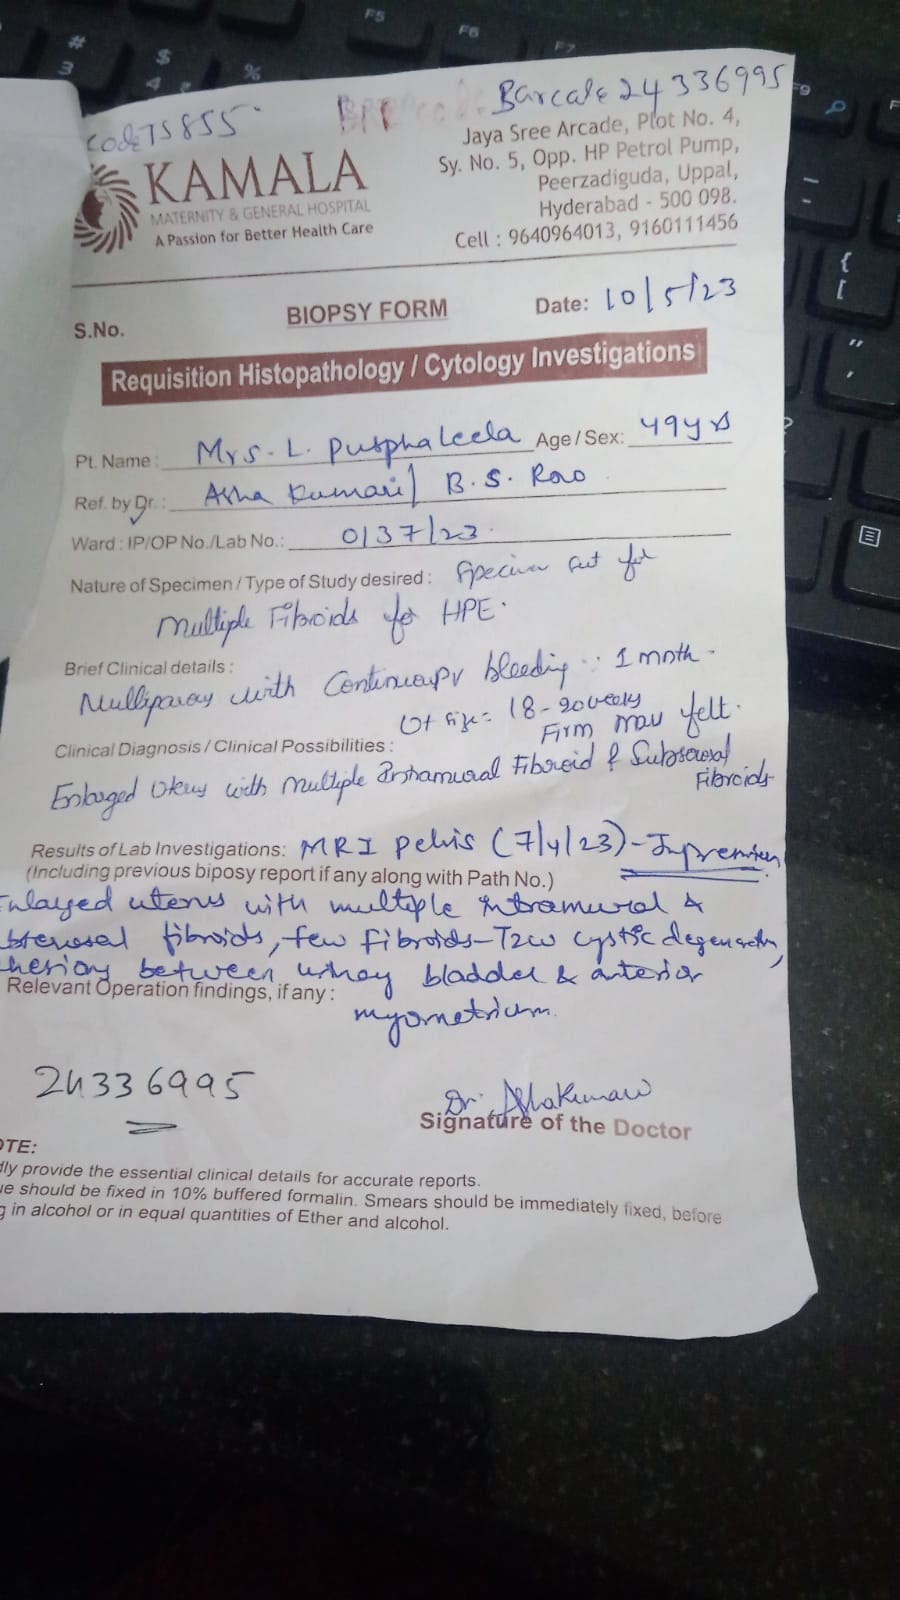 Code TS855
Barcode 24336995
KAMALA
MATERNITY & GENERAL HOSPITAL
A Passion for Better Health Care
Jaya Sree Arcade, Plot No. 4,
Sy. No. 5, Opp. HP Petrol Pump,
Peerzadiguda, Uppal,
Hyderabad - 500 098.
Cell : 9640964013, 9160111456
S.No.
BIOPSY FORM
Date: 10/5/23
Requisition Histopathology / Cytology Investigations
Pt. Name : Mrs. L. Pusphaleela Age / Sex: 49yrs
Ref. by Dr. : Asha Kumari / B. S. Rao
Ward : IP/OP No./Lab No.: 0137/23
Nature of Specimen / Type of Study desired : Specimen cut for
Multiple Fibroids for HPE.
Brief Clinical details :
with Continuous PV bleeding : 1 month.
Ut size = 18-20 weeks
Firm felt.
Clinical Diagnosis / Clinical Possibilities :
Enlarged Uterus with Multiple Intramural Fibroid & Subserosal
Fibroids
Results of Lab Investigations: MRI Pelvis (7/4/23) - Impression
(Including previous biposy report if any along with Path No.)
nlarged uterus with multiple intramural &
bserosal fibroids, few fibroids - T2W cystic degeneration,
hesions between urinary bladder & anterior
Relevant Operation findings, if any :
myometrium.
24336995
Dr. Asha Kumari
Signature of the Doctor
OTE:
dly provide the essential clinical details for accurate reports.
ue should be fixed in 10% buffered formalin. Smears should be immediately fixed, before
g in alcohol or in equal quantities of Ether and alcohol.
# 3
$ 4
%
F5
F6
F7
F9
{ [
" '